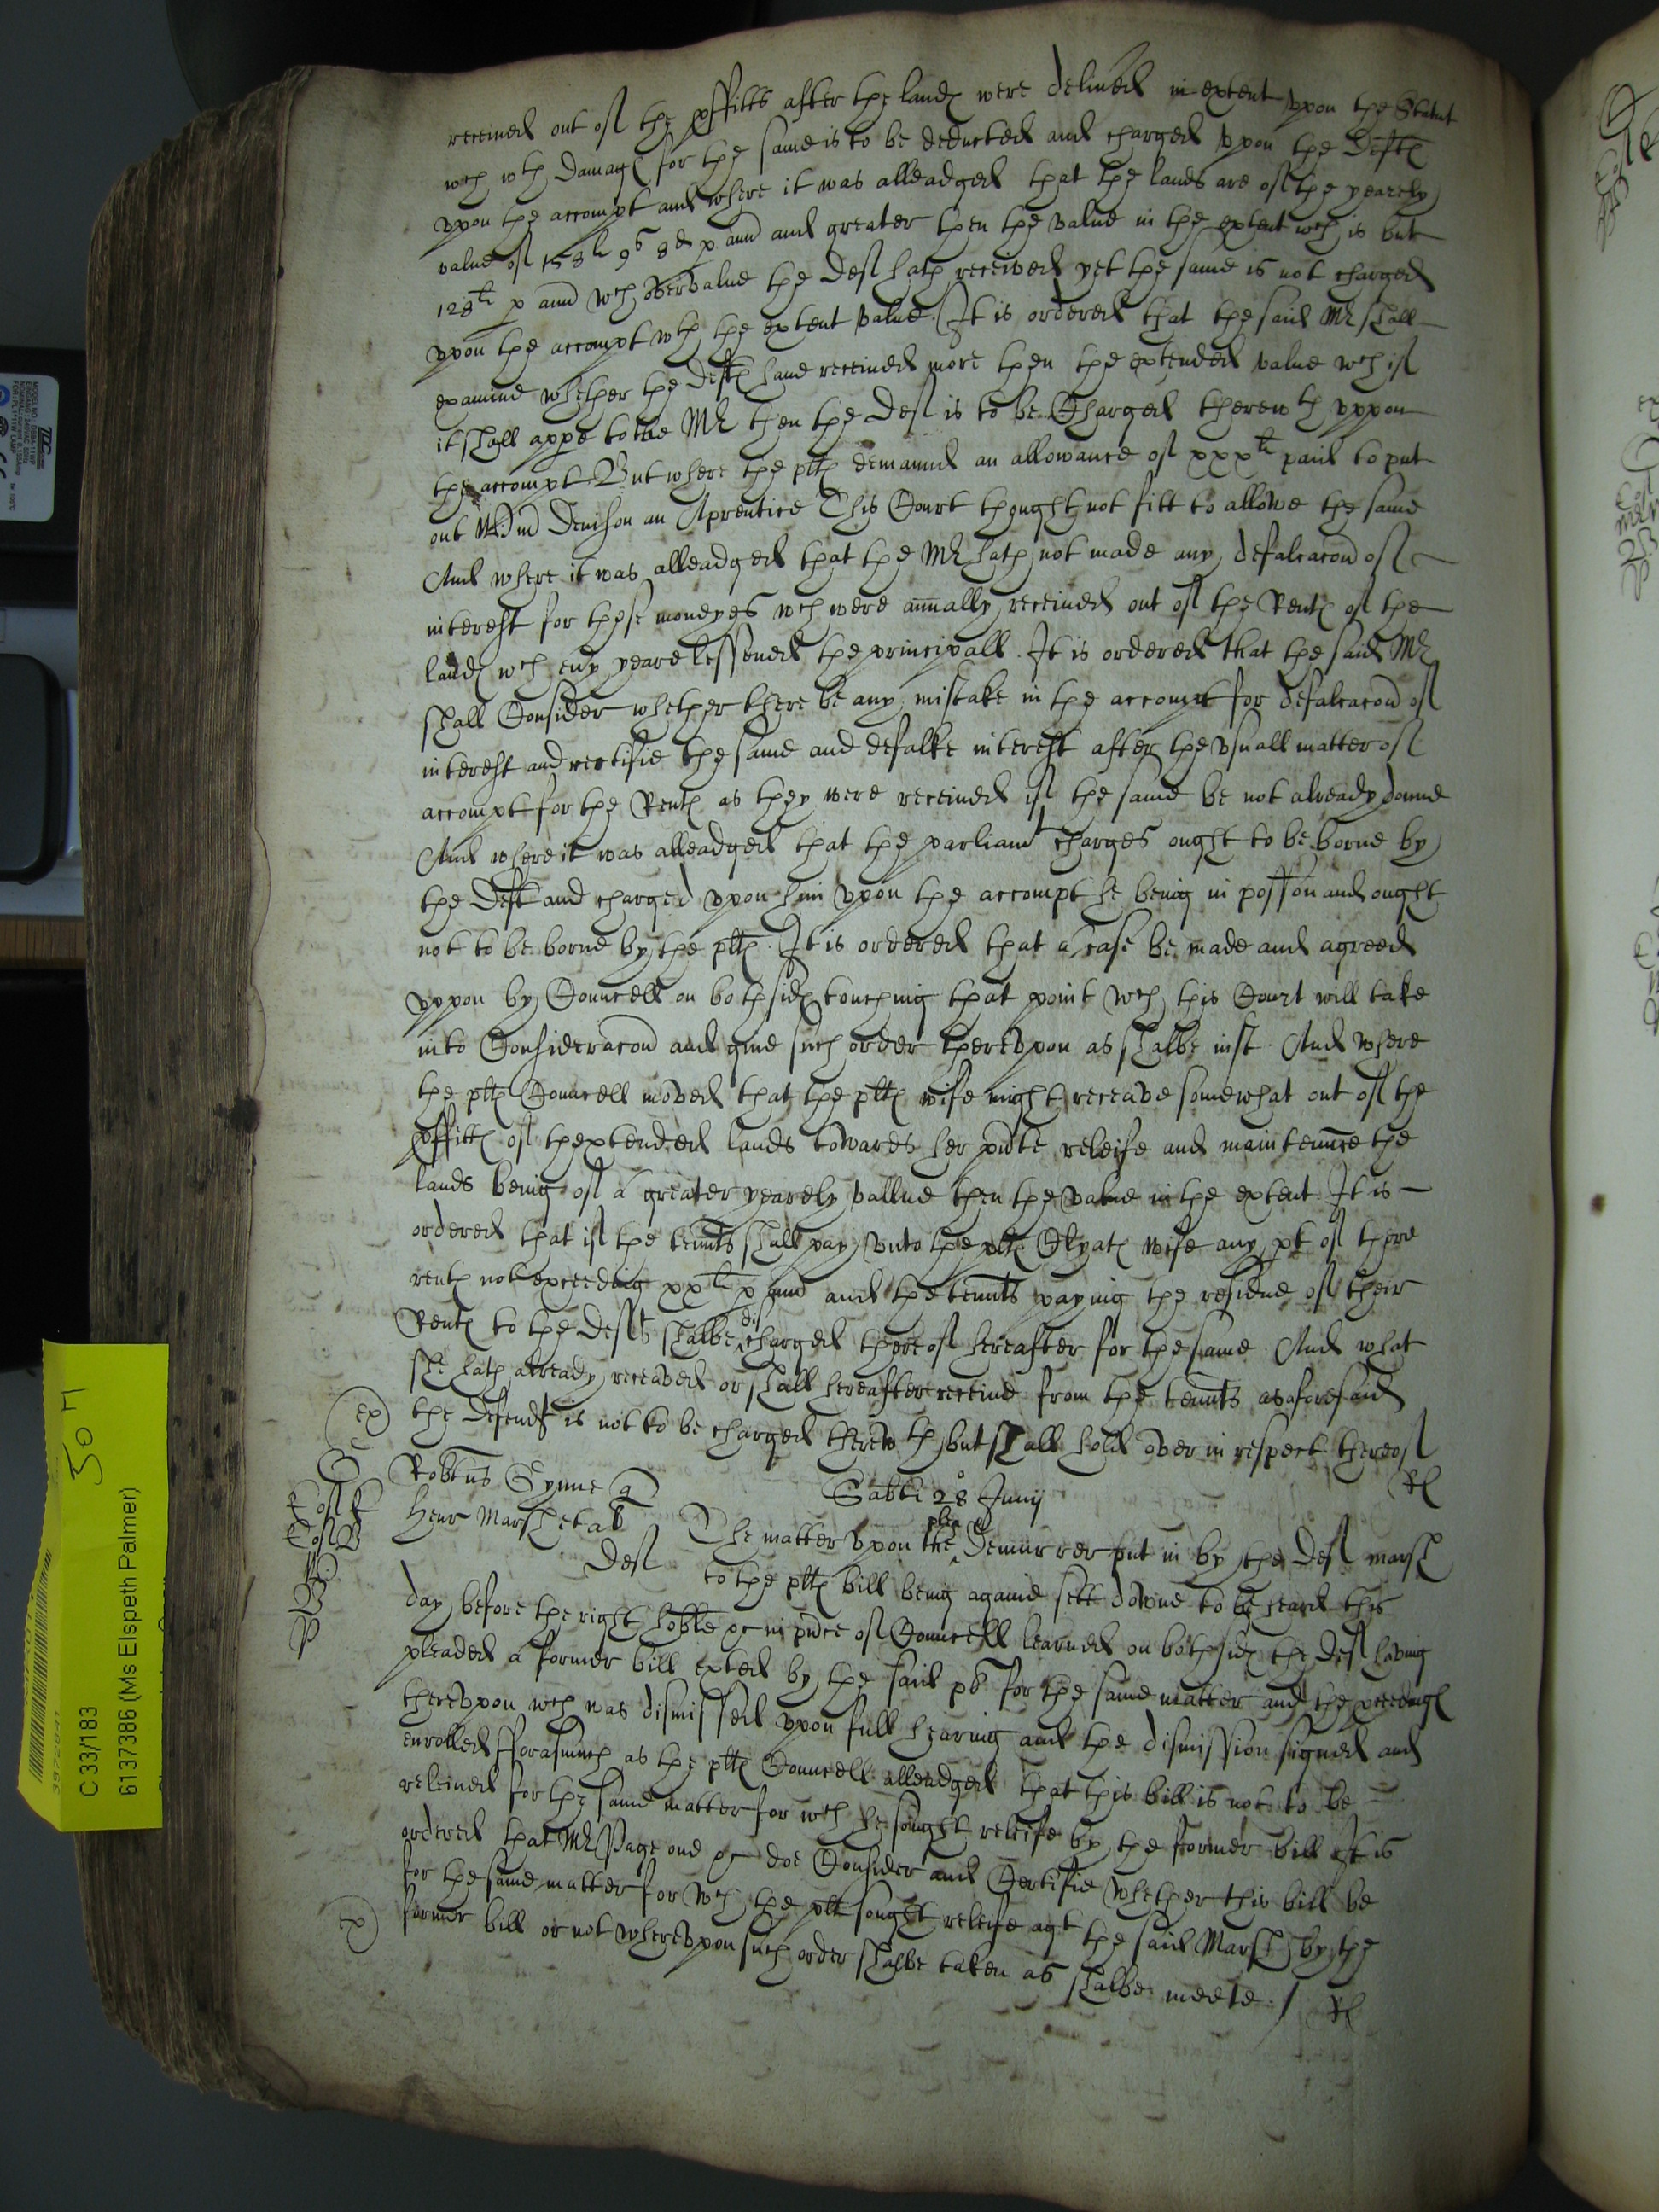 received out of the pffitts after the land℮ were delived in extent vpon the Statut
wch wth damag℮ for the same is to be deducted and charged vpon the Deft℮
vpon the accompt and where it was alleadged that the lands are of the yearely
value of 158li 9s 8d p ann and greater then the value in the extent wch is but
128li p ann wch overvalue the Def hath received yet the same is not charged
vpon the accompt wth the extent value. It is ordered that the said Mr shall
examine whether the Deft℮ have received more then the extended value wch if
it shall appe to the Mr then the Def is to be Charged therewth vppon
the accompt But where the plt℮ demaund an allowance of xxxli paid to put
out Denison an Aprentice This Court thought not fitt to allowe the same
And where it was alleadged that the Mr hath not made any defalcacon of
interest for those moneyes wch were annally received out of the Rent℮ of the
land℮ wch evy yeare lessened the principall. It is ordered that the said Mr
shall Consider whether there be any mistake in the accompt for defalcacon of
interest and rectifie the same and defalke interest after the vsuall matter of
accompt for the Rent℮ as they were received if the same be not already donne
And where it was alleadged that the parliamt charges ought to be borne by
the Deft and charged vpon him vpon the accompt he being in possion and ought
not to be borne by the plt℮. It is ordered that a case be made and agreed
vppon by Councell on both sid℮ touching that point wch this Court will take
into Consideracon and give such order therevpon as shalbe iust. And where
the plt℮ Councell moved that the plt℮ wife might receave somewhat out of the
pffitt℮ of thextended lands towards her pnte releife and maintennce the
lands being of a greater yearely vallue then the value in the extent It is
ordered that if the tennts shall pay vnto the plt℮ wife any pt of there
rent℮ not exceeding xxli p ann and the tennts paying the residue of their
Rent℮ to the Deft shalbe discharged thereof hereafter for the same And what
she hath already receaved or shall hereafter receive from the tennts as aforesaid
the defendt is not to be charged therewth but shall hold over in respect thereof
ex
Robtus Gynne q
Henr Marsh et al
Def
Sabti 28o Junij
The matter vpon the plea & Demurrer put in by the Def Marsh
to the plt℮ bill being againe sett downe to be heard this
day before the right hoble &c in pnce of Councell learned on both sid℮ the Def having
pleaded a former bill exted by the said plt for the same matter and the pceeding℮
therevpon wch was dismissed vpon full hearing and the dismission signed and
enrolled fforasmuch as the plt℮ Councell alleadged that this bill is not to be
releived for the same matter for wch he sought releife by the former bill It is
ordered that Mr Page one &c doe Consider and Certifie whether this bill be
for the same matter for wch the plt sought releife agt the said Marsh by the
former bill or not wherevpon such order shalbe taken as shalbe meete /
ex
50 M
C 33/183
6137386 (Ms Elspeth Palmer)